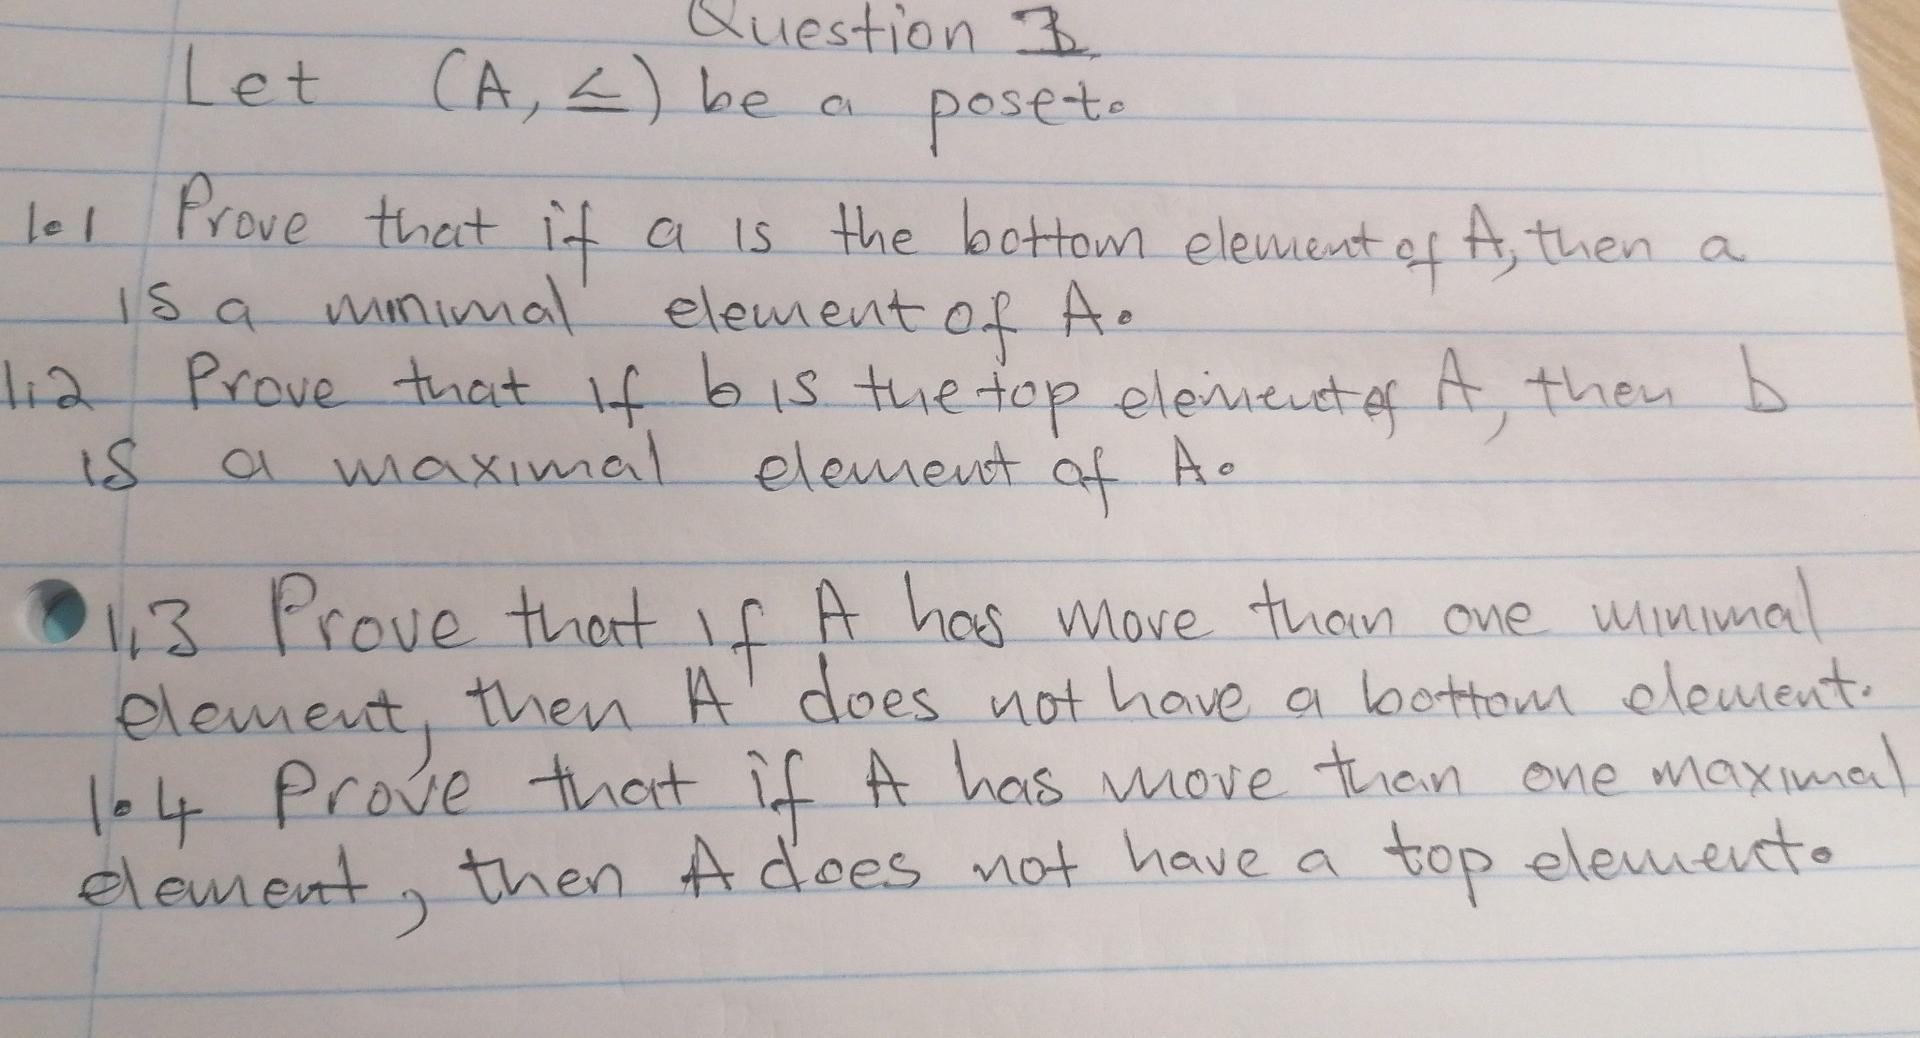 Question 1
Let (A, ≤) be a poset.
1.1 Prove that if a is the bottom element of A, then a
is a minimal element of A.
1.2 Prove that if b is the top element of A, then b
is a maximal element of A.
1.3 Prove that if A has more than one minimal
element, then A does not have a bottom element.
1.4 Prove that if A has more than one maximal
element, then A does not have a top element.